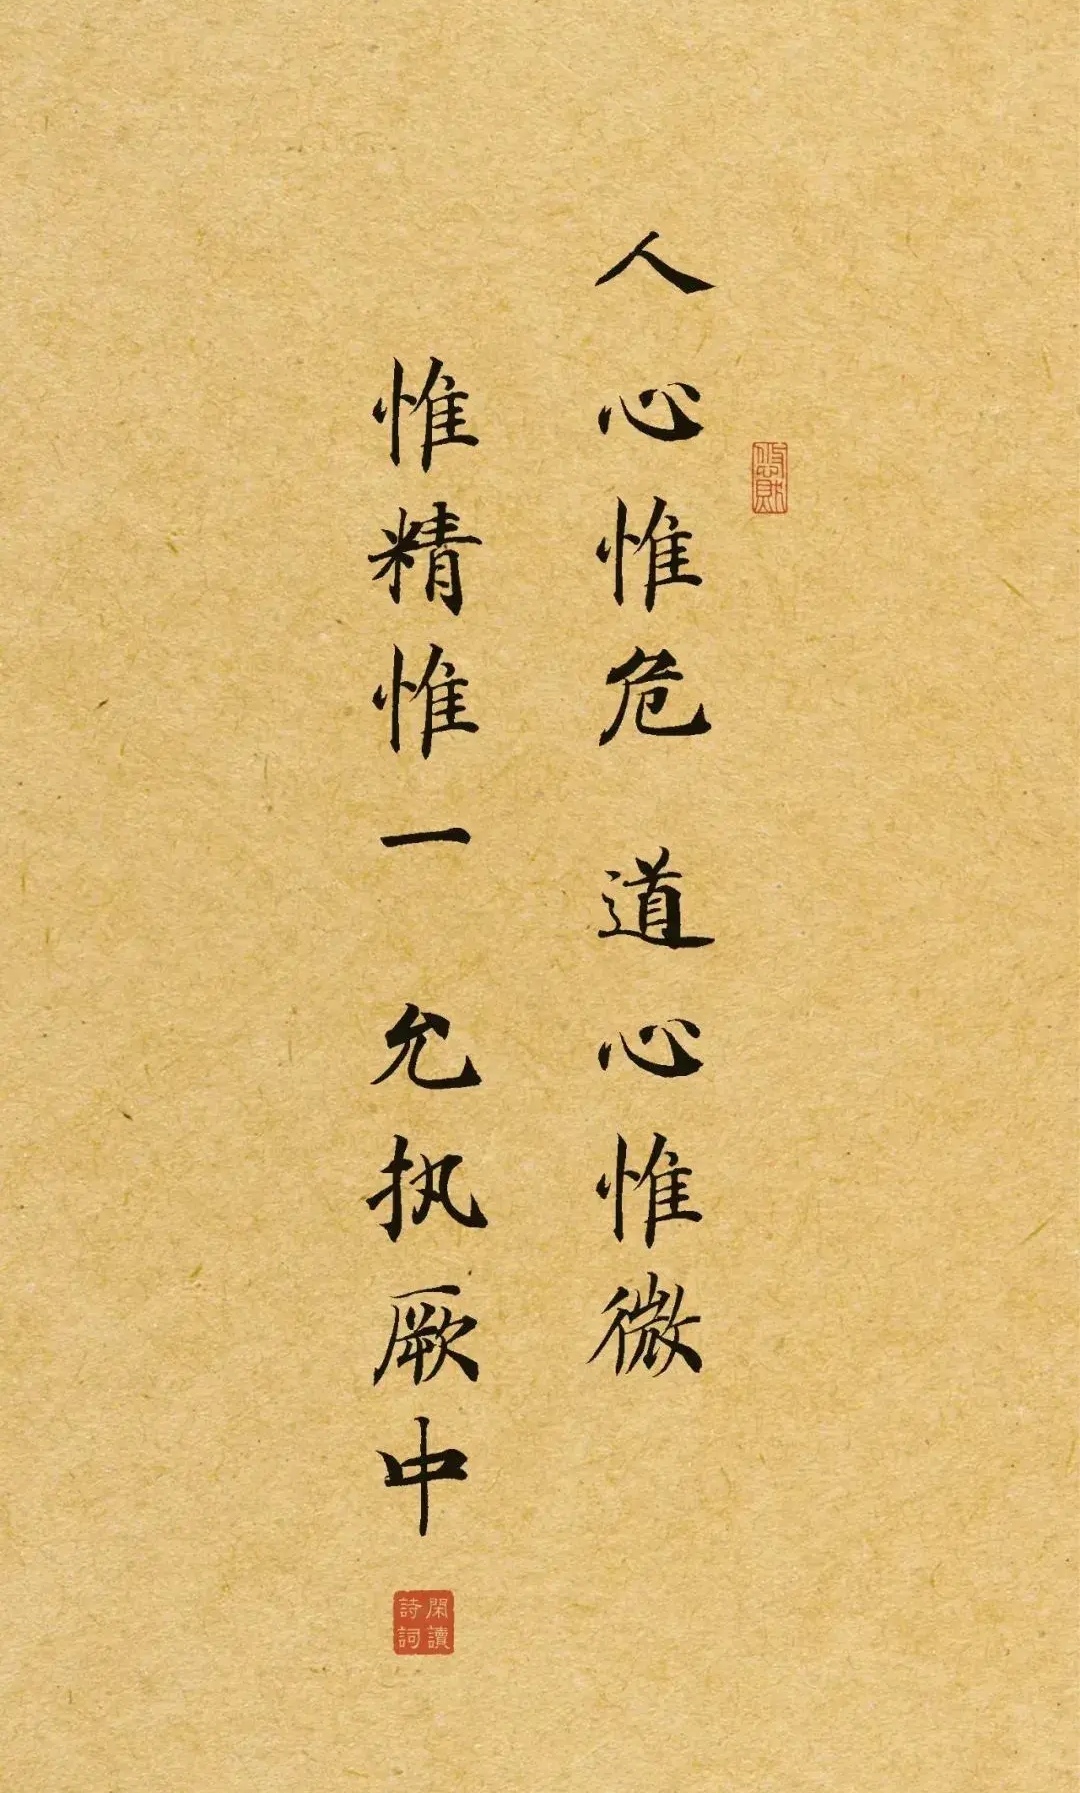 人心惟危 道心惟微
惟精惟一 允执厥中
閑讀
詩詞